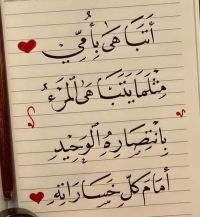 أَتَبَاهَىٰ بِأُمِّيْ
مِثْلَمَا يَتَبَاهَىٰ المَرْءُ
بِانْتِصَارِهِ الوَحِيْدِ
أَمَامَ كُلِّ خَسَارَاتِهِ